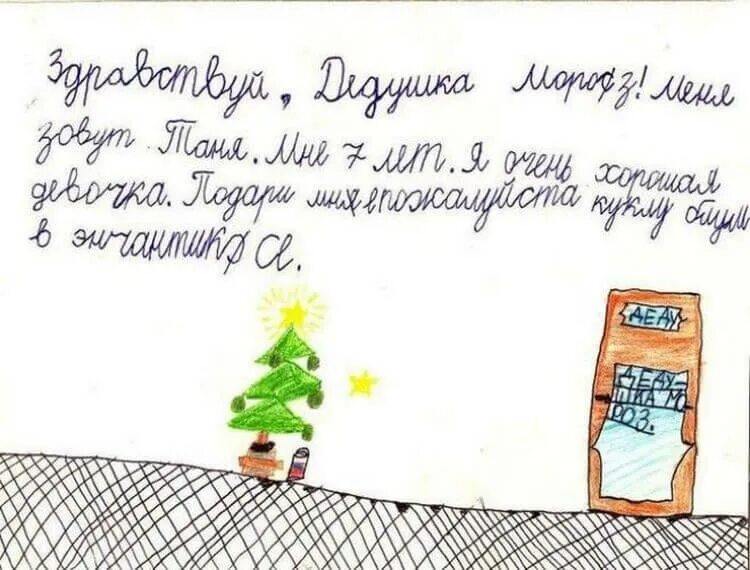 Здравствуй, Дедушка Мороз! Меня
зовут Таня. Мне 7 лет. Я очень хорошая
девочка. Подари мне пожалуйста куклу
в энчантикС.
ДЕДУ
ДЕДУ-
ШКА МО-
РОЗ.